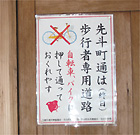 先斗町通は(終日)
歩行者専用道路
自転車・バイクは
押して通って
おくれやす